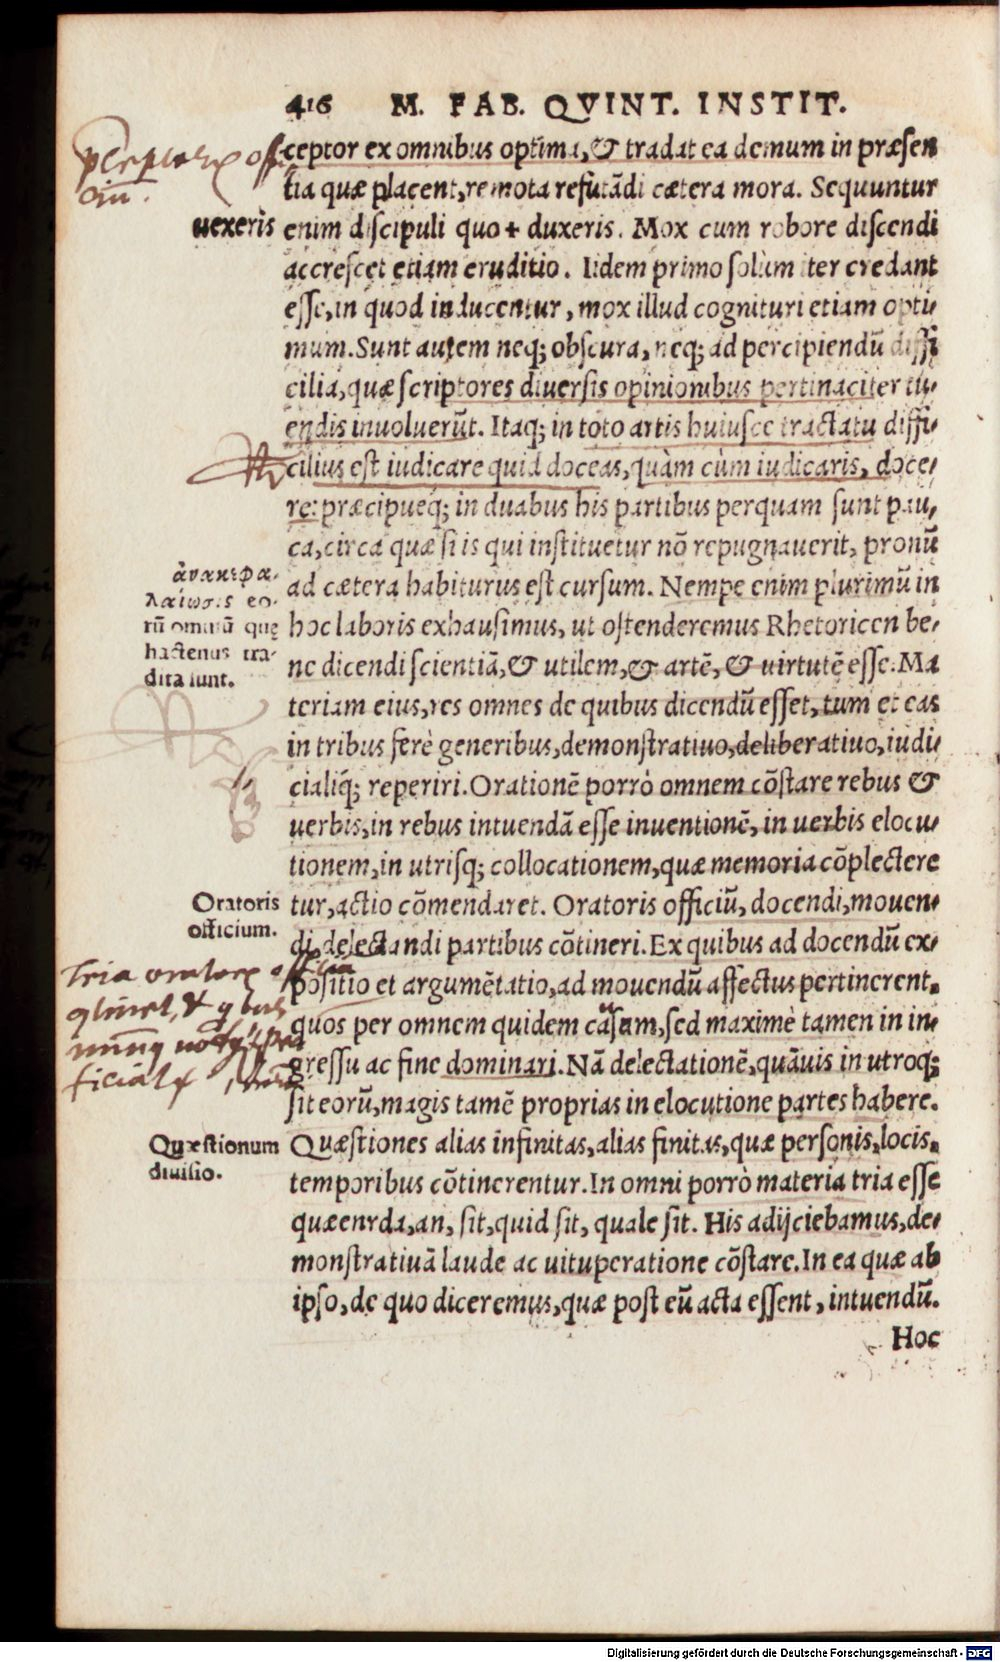 416 M. FAB. QVINT. INSTIT.
ceptor ex omnibus optima, & tradat ea demum in præsen
tia quæ placent, remota refutādi cætera mora. Sequuntur
uexeris
enim discipuli quo + duxeris. Mox cum robore discendi
accrescet etiam eruditio. Iidem primo solùm iter credant
esse, in quod inducentur, mox illud cognituri etiam opti-
mum. Sunt autem neq; obscura, neq; ad percipiendū diffi
cilia, quæ scriptores diuersis opinionibus pertinaciter tu-
endis inuoluerūt. Itaq; in toto artis huiusce tractatu diffi-
cilius est iudicare quid doceas, quàm cùm iudicaris, doce-
re: præcipueq́; in duabus his partibus perquam sunt pau-
ca, circa quæ si is qui instituetur nō repugnauerit, pronū
ἀνακεφα-
λαίωσις eo-
rū omniū quę
hactenus tra-
dita sunt.
ad cætera habiturus est cursum. Nempe enim plurimū in
hoc laboris exhausimus, ut ostenderemus Rhetoricen be-
ne dicendi scientiā, & utilem, & artē, & uirtutē esse. Ma
teriam eius, res omnes de quibus dicendū esset, tum et eas
in tribus ferè generibus, demonstratiuo, deliberatiuo, iudi
cialiq́; reperiri. Orationē porrò omnem cōstare rebus &
uerbis, in rebus intuendā esse inuentionē, in uerbis elocu-
tionem, in utrisq; collocationem, quæ memoria cōplectere
Oratoris
officium.
tur, actio cōmendaret. Oratoris officiū, docendi, mouen-
di, delectandi partibus cōtineri. Ex quibus ad docendū ex-
positio et argumētatio, ad mouendū affectus pertinerent.
quos per omnem quidem causam, sed maximè tamen in in-
gressu ac fine dominari. Nā delectationē, quāuis in utroq;
sit eorū, magis tamē proprias in elocutione partes habere.
Quæstionum
diuisio.
Quæstiones alias infinitas, alias finitas, quæ personis, locis,
temporibus cōtinerentur. In omni porrò materia tria esse
quæenrda, an, sit, quid sit, quale sit. His adijciebamus, de-
monstratiuā laude ac uituperatione cōstare. In ea quæ ab
ipso, de quo diceremus, quæ post eū acta essent, intuendū.
Hoc
Digitalisierung gefördert durch die Deutsche Forschungsgemeinschaft - DFG